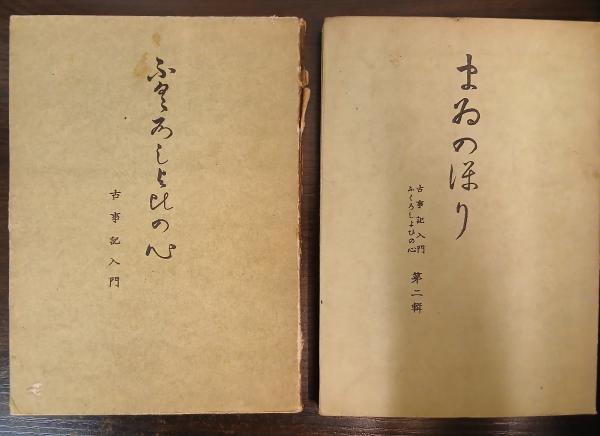 ふくろしよひの心
古事記入門
まゐのほり
古事記入門
ふくろしよひの心
第二輯